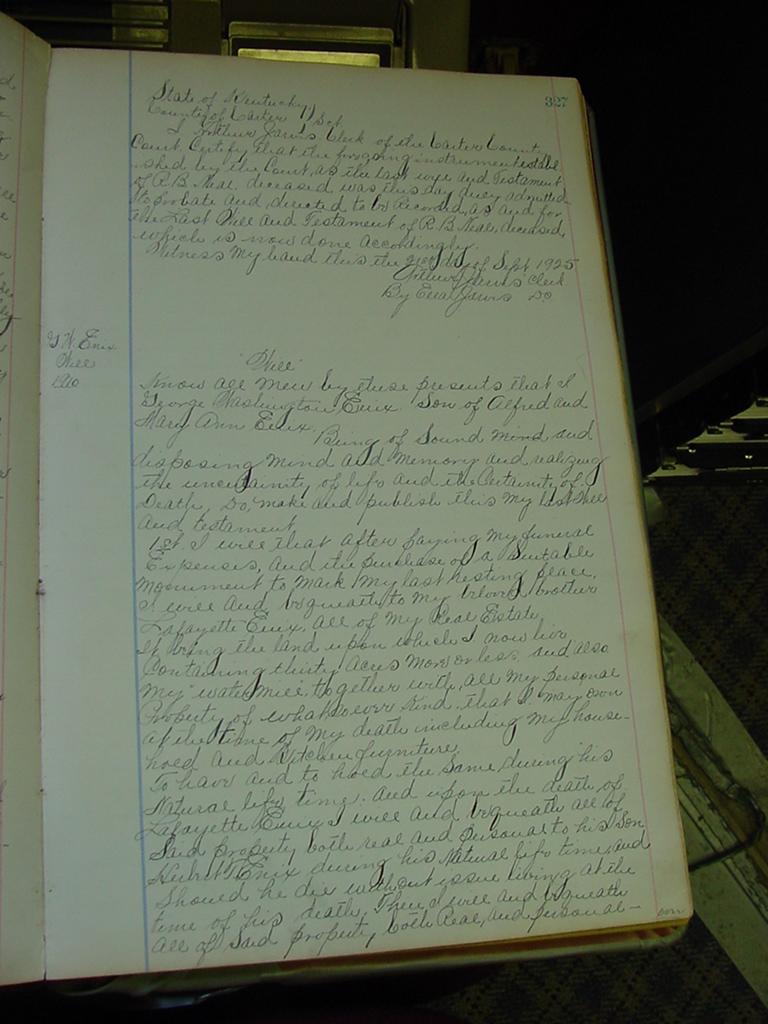 327
State of Kentucky
County of Carter Sct
I Arthur Jarvis Clerk of the Carter County
Court Certify that the forgoing instrument establi
shed by the Court, as the last will and Testament
of R. B. Neal, deceased was this day duly admitted
to probate and directed to be Recorded, as and for
the Last Will and Testament of R. B. Neal, deceased,
which is now done accordingly.
Witness my hand this the day of Sept 1925
Arthur Jarvis Clerk
By Jarvis DC
G. W. Enix
Will
1910
"Will"
Know all men by these presents that I
George Washington Enix. Son of Alfred and
Mary Ann Enix. Being of Sound mind and
disposing mind and memory and realizing
the uncertainity of life and the Certainity of
Death, Do, make and publish this my last Will
and testament
1st. I will that after paying my funeral
Expenses, and the purchase of a Suitable
monument to mark my last resting place.
I will and bequeath to my beloved brother
Lafayette Enix, all of my Real Estate,
It being the land upon which I now live
Containing thirty acres more or less. and also
my water mill, together with, all my personal
Property of whatsoever Kind, that I may own
at the time of my death including my house-
hold and Kitchen furniture.
To have and to hold the same during his
Natural life time: and upon the death of
Lafayette Enix, I will and bequeath all of
Said property both real and personal to his Son
Enix during his Natural life time, and
Should he die without issue living at the
time of his death, Then I will and bequeath
all of Said property, both Real, and personal—